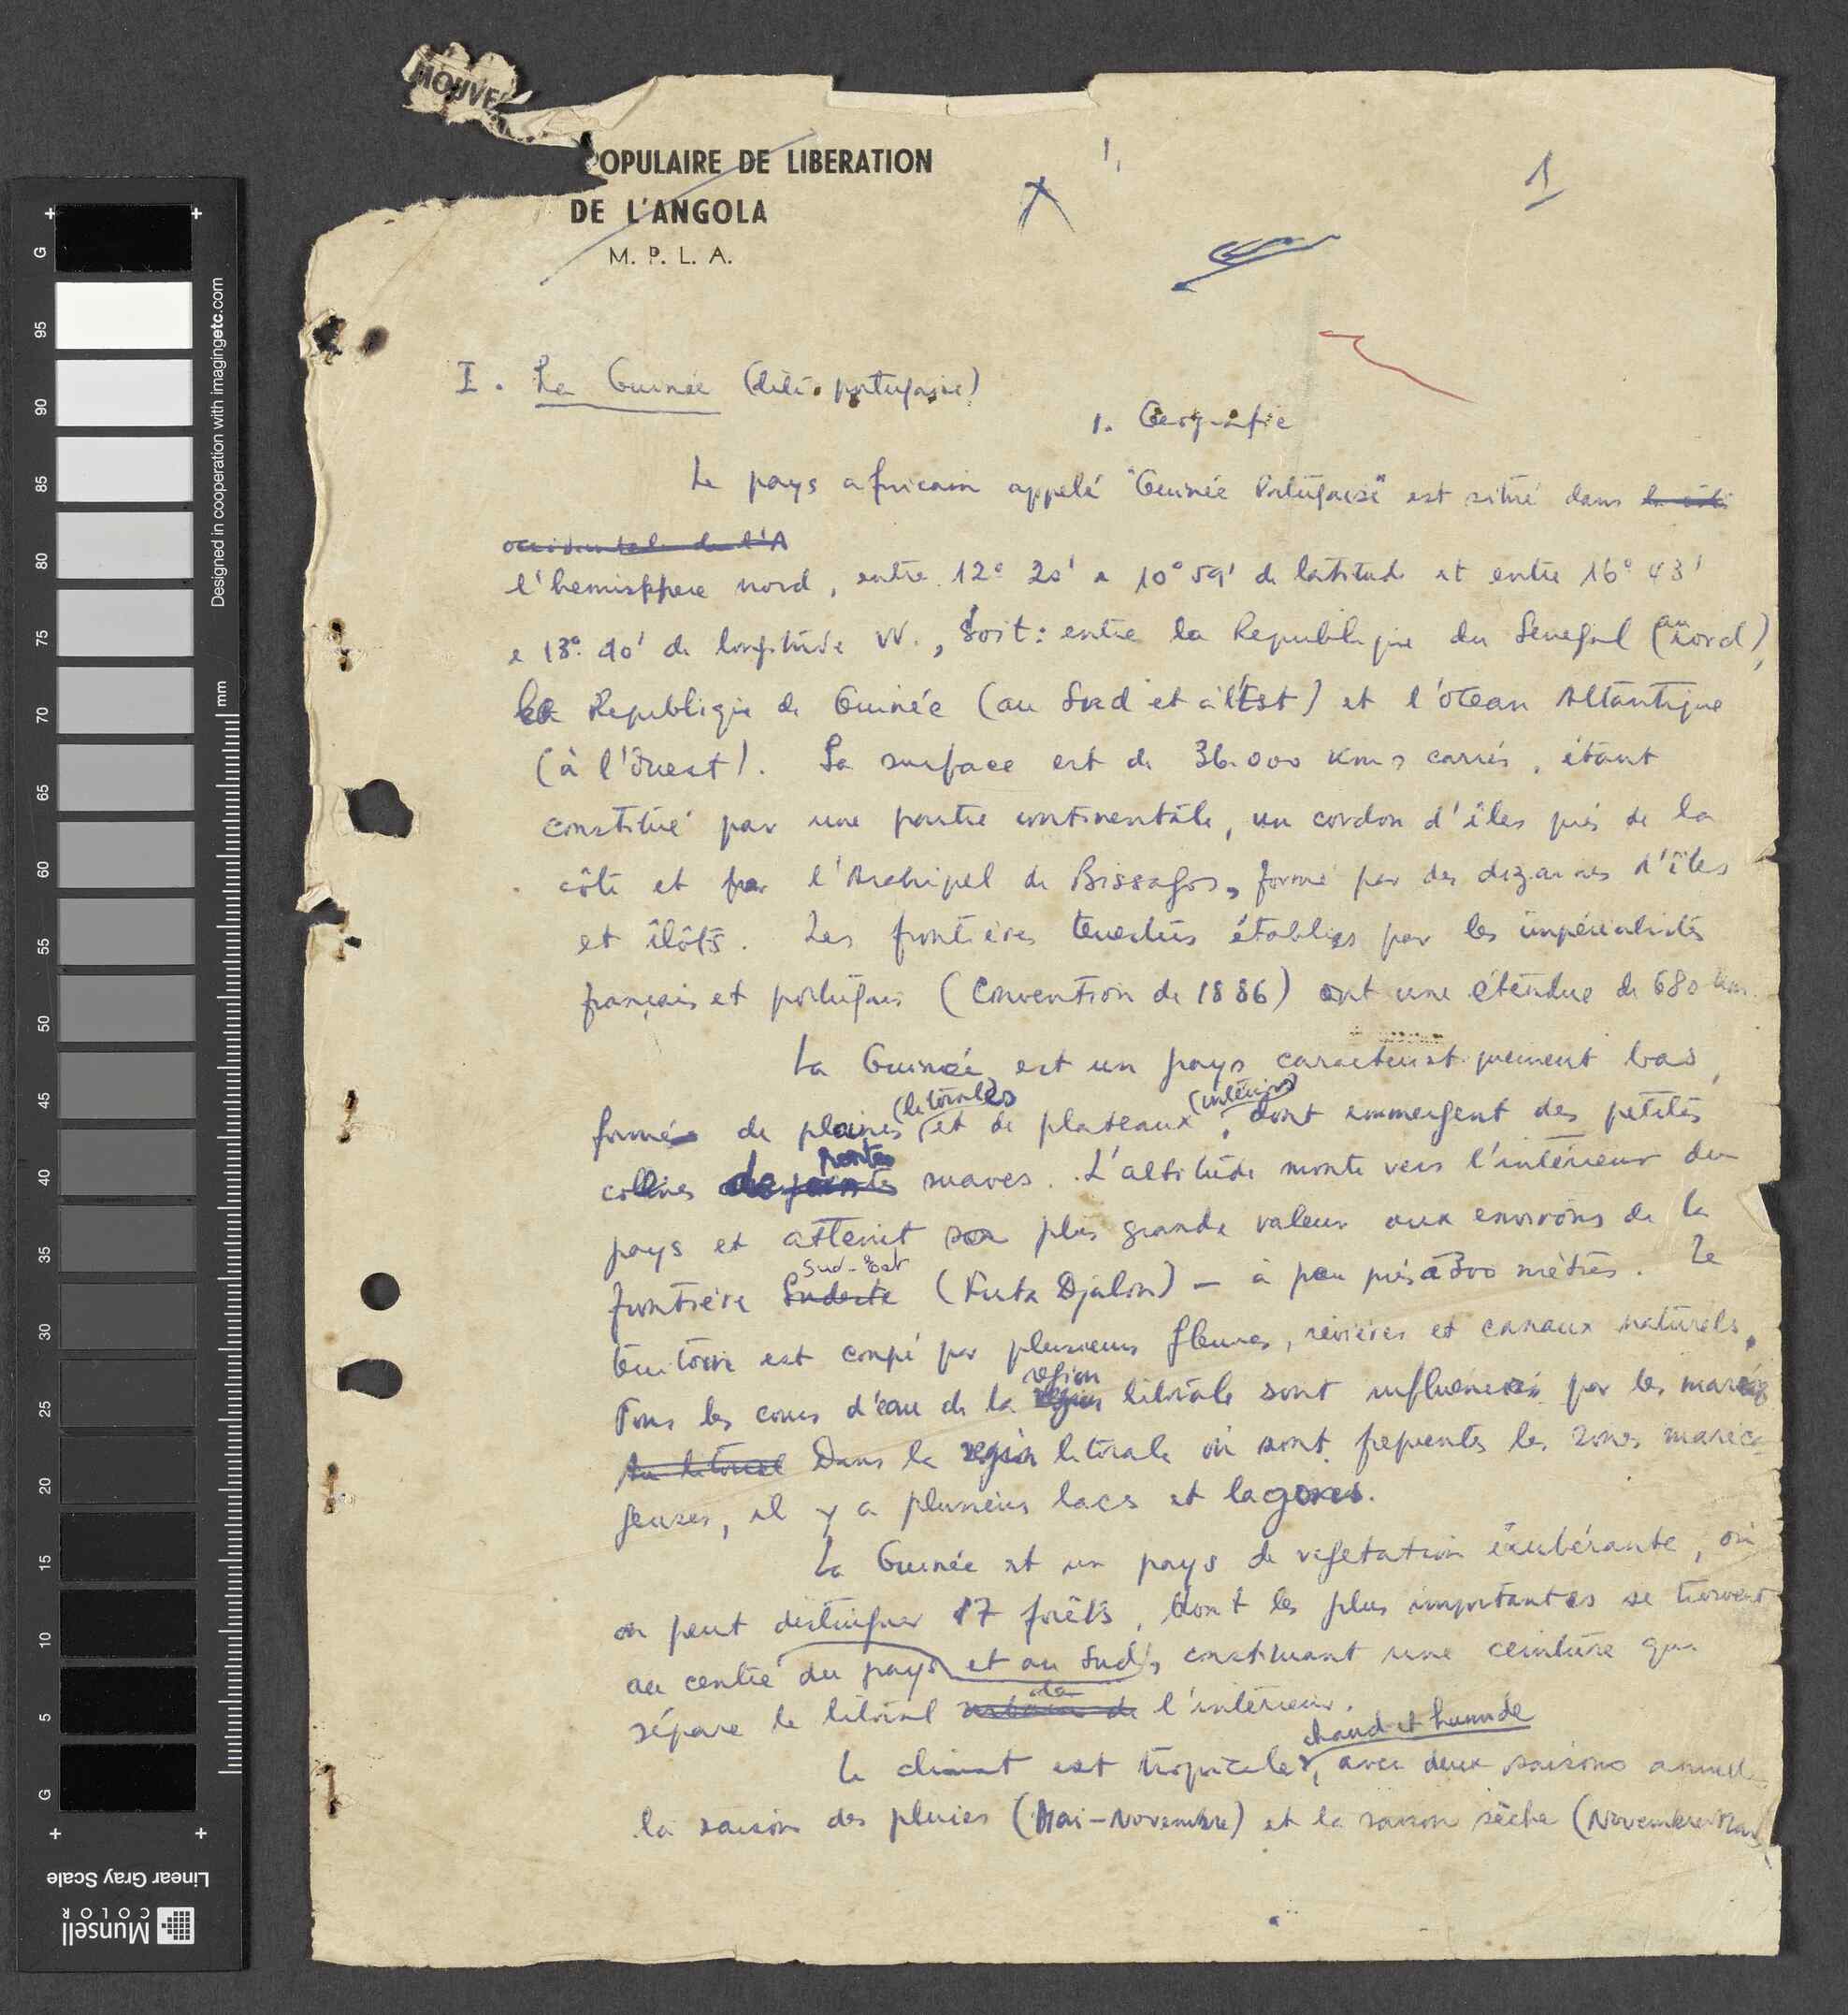 MOUVE
POPULAIRE DE LIBERATION
DE L'ANGOLA
M. P. L. A.
1
I. La Guinée (dite portugaise)
1. Geografie
Le pays africain appelé "Guinée Portugaise" est situé dans la côte
occidentale de l'A
l'hemisphere nord, entre 12° 20' e 10° 59' de latitude et entre 16° 43'
e 13° 40' de longitude W., soit: entre la Republique du Senegal (au nord),
la Republique de Guinée (au Sud et à l'Est) et l'ócean Atlantique
(à l'Ouest). Sa surface est de 36.000 kms carrés, étant
constitué par une partie continentale, un cordon d'îles près de la
côte et par l'Archipel de Bissagos, formé par des dizaines d'îles
et îlôts. Les frontières terrestres établies par les impérialistes
français et portugais (Convention de 1886) ont une étendue de 680 km.
La Guinée est un pays caracteristiquement bas,
(litorales) (intérior)
formé de plaines et de plateaux, dont emmergent des petites
pentes
collines de pointes suaves. L'altitude monte vers l'intérieur du
pays et atteint sa plus grande valeur aux environs de la
Sud-Est
frontière Sudeste (Futa Djalon) — à peu près a 300 mètres. Le
territoire est coupé par plusieurs fleuves, rivières et canaux naturels.
region
Tous les cours d'eau de la region litorale sont influencés par les marées
du litoral Dans la region litorale où sont frequentes les zones maréca-
geuses, il y a plusieurs lacs et lagones.
La Guinée est un pays de vegetation éxubérante, où
on peut distinguer 17 forêts, dont les plus importantes se trouvent
au centre du pays et au Sud, constituant une ceinture qui
sépare le litoral de l'intérieur.
chaud et humide
Le climat est tropicale, avec deux saisons annuelles
la saison des pluies (Mai-Novembre) et la saison sèche (Novembre-Mai)
G
95
90
85
80
75
70
65
60
55
50
45
40
35
30
25
20
15
10
5
G
mm
Designed in cooperation with imagingetc.com
Linear Gray Scale
Munsell
COLOR